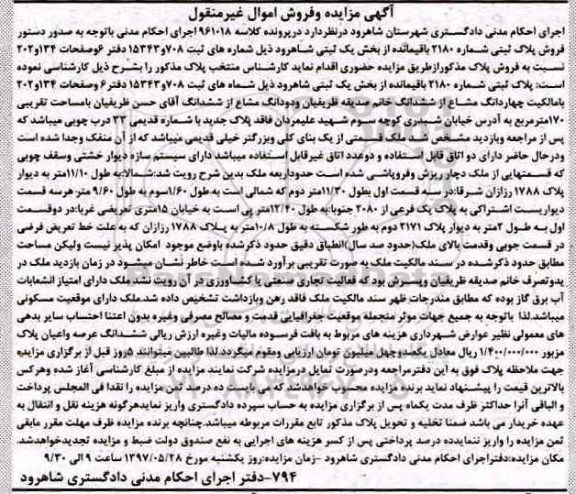 آگهی مزایده وفروش اموال غیرمنقول
اجرای احکام مدنی دادگستری شهرستان شاهرود درنظردارد درپرونده کلاسه ۹۶۱۰۱۸ اجرای احکام مدنی باتوجه به صدور دستور
فروش پلاک ثبتی شماره ۲۱۸۰ باقیمانده از بخش یک ثبتی شاهرود ذیل شماره های ثبت ۷۰۸و۱۵۳۴۳ دفتر ۶وصفحات ۱۳۴و۲۰۲
نسبت به فروش پلاک مذکورازطریق مزایده حضوری اقدام نماید کارشناس منتخب پلاک مذکور را بشرح ذیل کارشناسی نموده
است: پلاک ثبتی شماره ۲۱۸۰ باقیمانده از بخش یک ثبتی شاهرود ذیل شماه های ثبت ۷۰۸و۱۵۳۴۳ دفتر ۶ وصفحات ۱۳۴و۲۰۲
بامالکیت چهاردانگ مشاع از ششدانگ خانم صدیقه ظریفیان ودودانگ مشاع از ششدانگ آقای حسن ظریفیان بامساحت تقریبی
۱۷۰مترمربع به آدرس خیابان شبدری کوچه سوم شهید علیمردان فاقد پلاک جدید با شماره قدیمی ۳۳ درب چوبی میباشد که
پس از مراجعه وبازدید مشخص شد ملک قسمتی از یک بنای کلی وبزرگتر خیلی قدیمی میباشد که از آن منفک وجدا شده است
ودرحال حاضر دارای دو اتاق قابل استفاده و دوعدد اتاق غیرقابل استفاده میباشد دارای سیستم سازه دیوار خشتی وسقف چوبی
که قسمتهایی از ملک دچار ریزش وفروپاشی شده است حدوداربعه ملک بدین شرح رویت شد:شمالا:به طول ۱۱/۱۰متر به دیوار
پلاک ۱۷۸۸ رازیان شرقا:در سه قسمت اول بطول ۱۱/۳۰متر دوم که شمالی است به طول ۱/۶۰سوم به طول ۹/۶۰ متر هرسه قسمت
دیواریست اشتراکی به پلاک یک فرعی از ۲۰۸۰ جنوبا:به طول ۱۲/۴۰متر پی است به خیابان ۱۵متری تعریضی غربا:در دوقسمت
اول به طول ۲متر به دیوار پلاک ۲۱۷۱ دوم به طور شکسته به طول ۱۰/۸متر به پلاک ۱۷۸۸ رازکان که به علت خط تعریض فرضی
در قسمت جوبی وقدمت بالای ملک(حدود صد سال)انطباق دقیق حدود ذکرشده باوضع موجود امکان پذیر نیست ولیکن مساحت
مطابق حدود ذکرشده در سند مالکیت ملک به صورت تقریبی برآورد شده است خاطر نشان میشود در زمان بازدید ملک در
یدوتصرف خانم صدیقه ظریفیان وپسرش بود که فعالیت تجاری صنعتی یا کشاورزی در آن رویت نشد.ملک دارای امتیاز انشعابات
آب برق گاز بوده که مطابق مندرجات ظهر سند مالکیت ملک فاقد رهن وبازداشت تشخیص داده شد.ملک دارای موقعیت مسکونی
میباشد.لذا باتوجه به جمیع جهات موثر منجمله موقعیت جغرافیایی قدمت و مصالح مصرفی وغیره بدون اعتنا احتساب سایر بدهی
های معمولی نظیر عوارض شهرداری هزینه های مربوط به بافت فرسوده مالیات وغیره ارزش ریالی ششدانگ عرصه واعیان پلاک
مزبور ۱/۴۰۰/۰۰۰/۰۰۰ ریال معادل یکصدوچهل میلیون تومان ارزیابی ومقوم میگردد.لذا طالبین میتوانند ۵روز قبل از برگزاری مزایده
جهت ملاحظه پلاک فوق به این دفترمراجعه ودرصورت تمایل درمزایده شرکت نمایند مزایده از مبلغ کارشناسی آغاز شده وهرکس
بالاترین قیمت را پیشنهاد نماید برنده مزایده محسوب خواهدشد که می بایست ده درصد ثمن مزایده را نقدا فی المجلس پرداخت
و الباقی آنرا حداکثر ظرف مدت یکماه پس از برگزاری مزایده به حساب سپرده دادگستری واریز نمایدهرگونه هزینه نقل و انتقال به
عهده خریدار می باشد ضمنا تخلیه و تحویل پلاک مذکور تابع مقررات مربوطه میباشد.چنانچه برنده مزایده ظرف مهلت مقرر مابقی
ثمن مزایده را واریز ننمایدده درصد پرداختی پس از کسر هزینه های اجرایی به نفع صندوق دولت ضبط و مزایده تجدیدخواهدشد.
مکان مزایده:دفتراجرای احکام مدنی دادگستری شاهرود -زمان مزایده:روز یکشنبه مورخ ۱۳۹۷/۰۵/۲۸ ساعت ۹ الی ۹/۳۰
۷۹۴-دفتر اجرای احکام مدنی دادگستری شاهرود